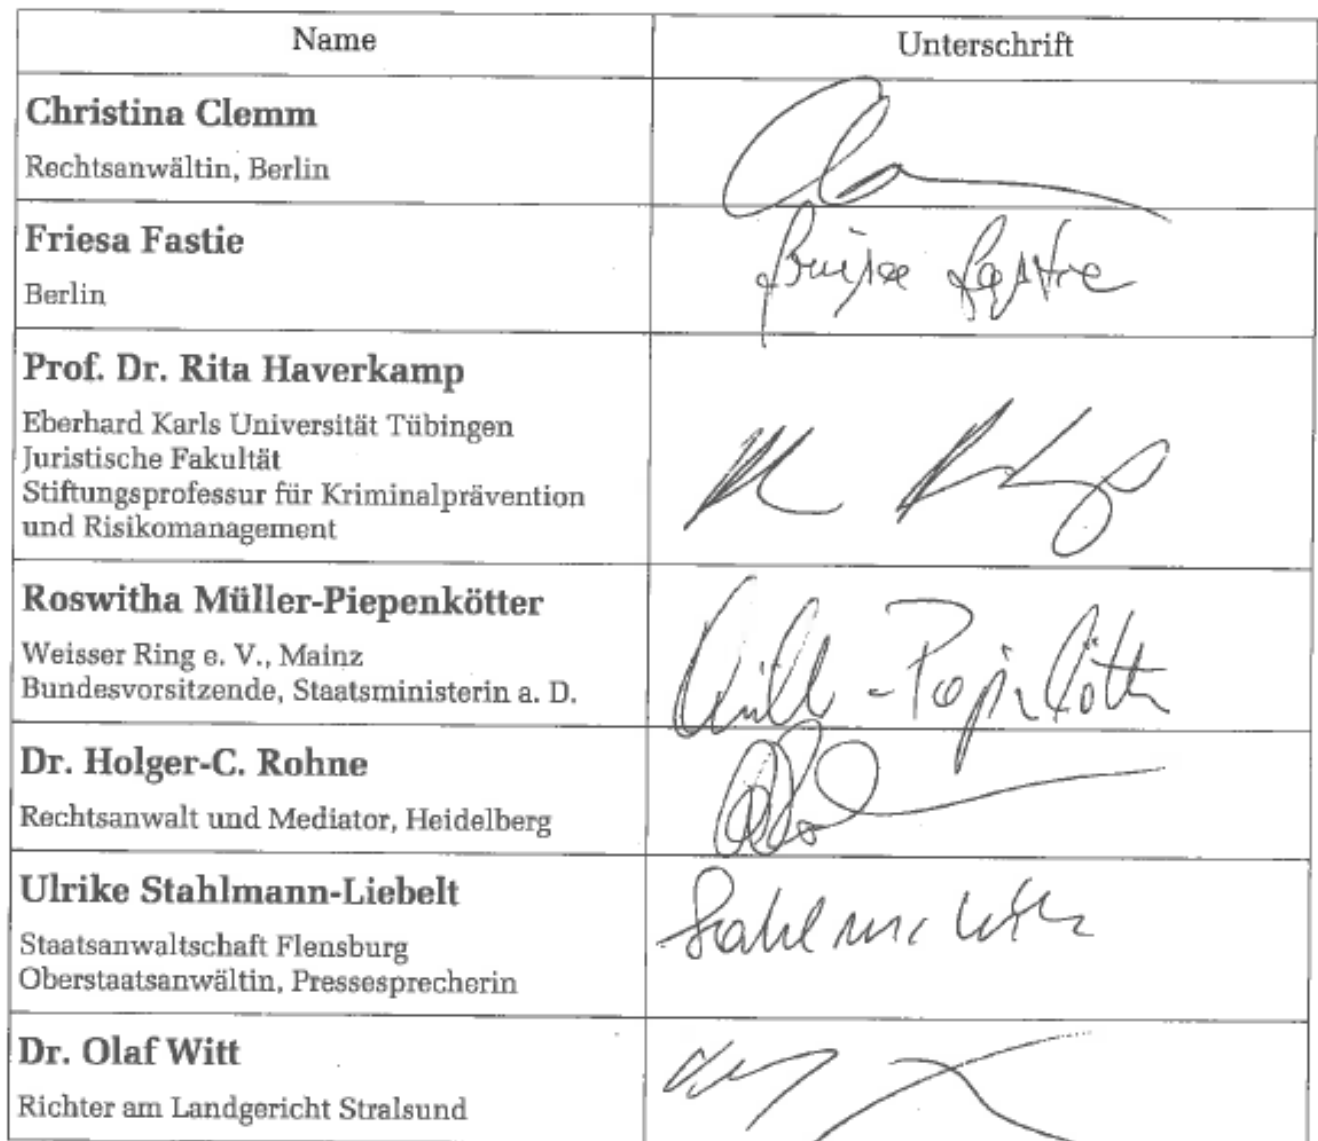 Name
Unterschrift
Christina Clemm
Rechtsanwältin, Berlin
Friesa Fastie
Berlin
Prof. Dr. Rita Haverkamp
Eberhard Karls Universität Tübingen
Juristische Fakultät
Stiftungsprofessur für Kriminalprävention
und Risikomanagement
Roswitha Müller-Piepenkötter
Weisser Ring e. V., Mainz
Bundesvorsitzende, Staatsministerin a. D.
Dr. Holger-C. Rohne
Rechtsanwalt und Mediator, Heidelberg
Ulrike Stahlmann-Liebelt
Staatsanwaltschaft Flensburg
Oberstaatsanwältin, Pressesprecherin
Dr. Olaf Witt
Richter am Landgericht Stralsund